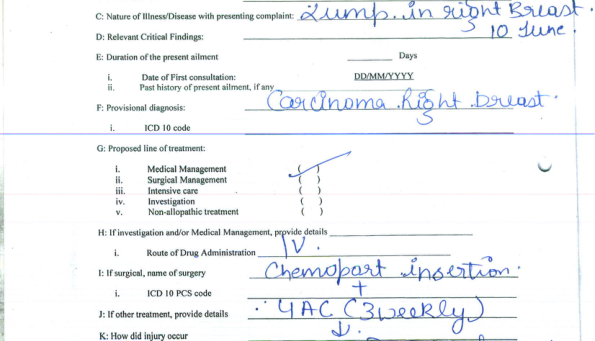 C: Nature of Illness/Disease with presenting complaint: Lump in right Breast.
D: Relevant Critical Findings: 10 June.
E: Duration of the present ailment ________ Days
i. Date of First consultation: DD/MM/YYYY
ii. Past history of present ailment, if any
F: Provisional diagnosis: Carcinoma Right breast.
i. ICD 10 code
G: Proposed line of treatment:
i. Medical Management (✓)
ii. Surgical Management ( )
iii. Intensive care ( )
iv. Investigation ( )
v. Non-allopathic treatment ( )
H: If investigation and/or Medical Management, provide details
i. Route of Drug Administration IV.
I: If surgical, name of surgery Chemopart insertion.
i. ICD 10 PCS code +
J: If other treatment, provide details 4AC (3 weekly)
K: How did injury occur ↓